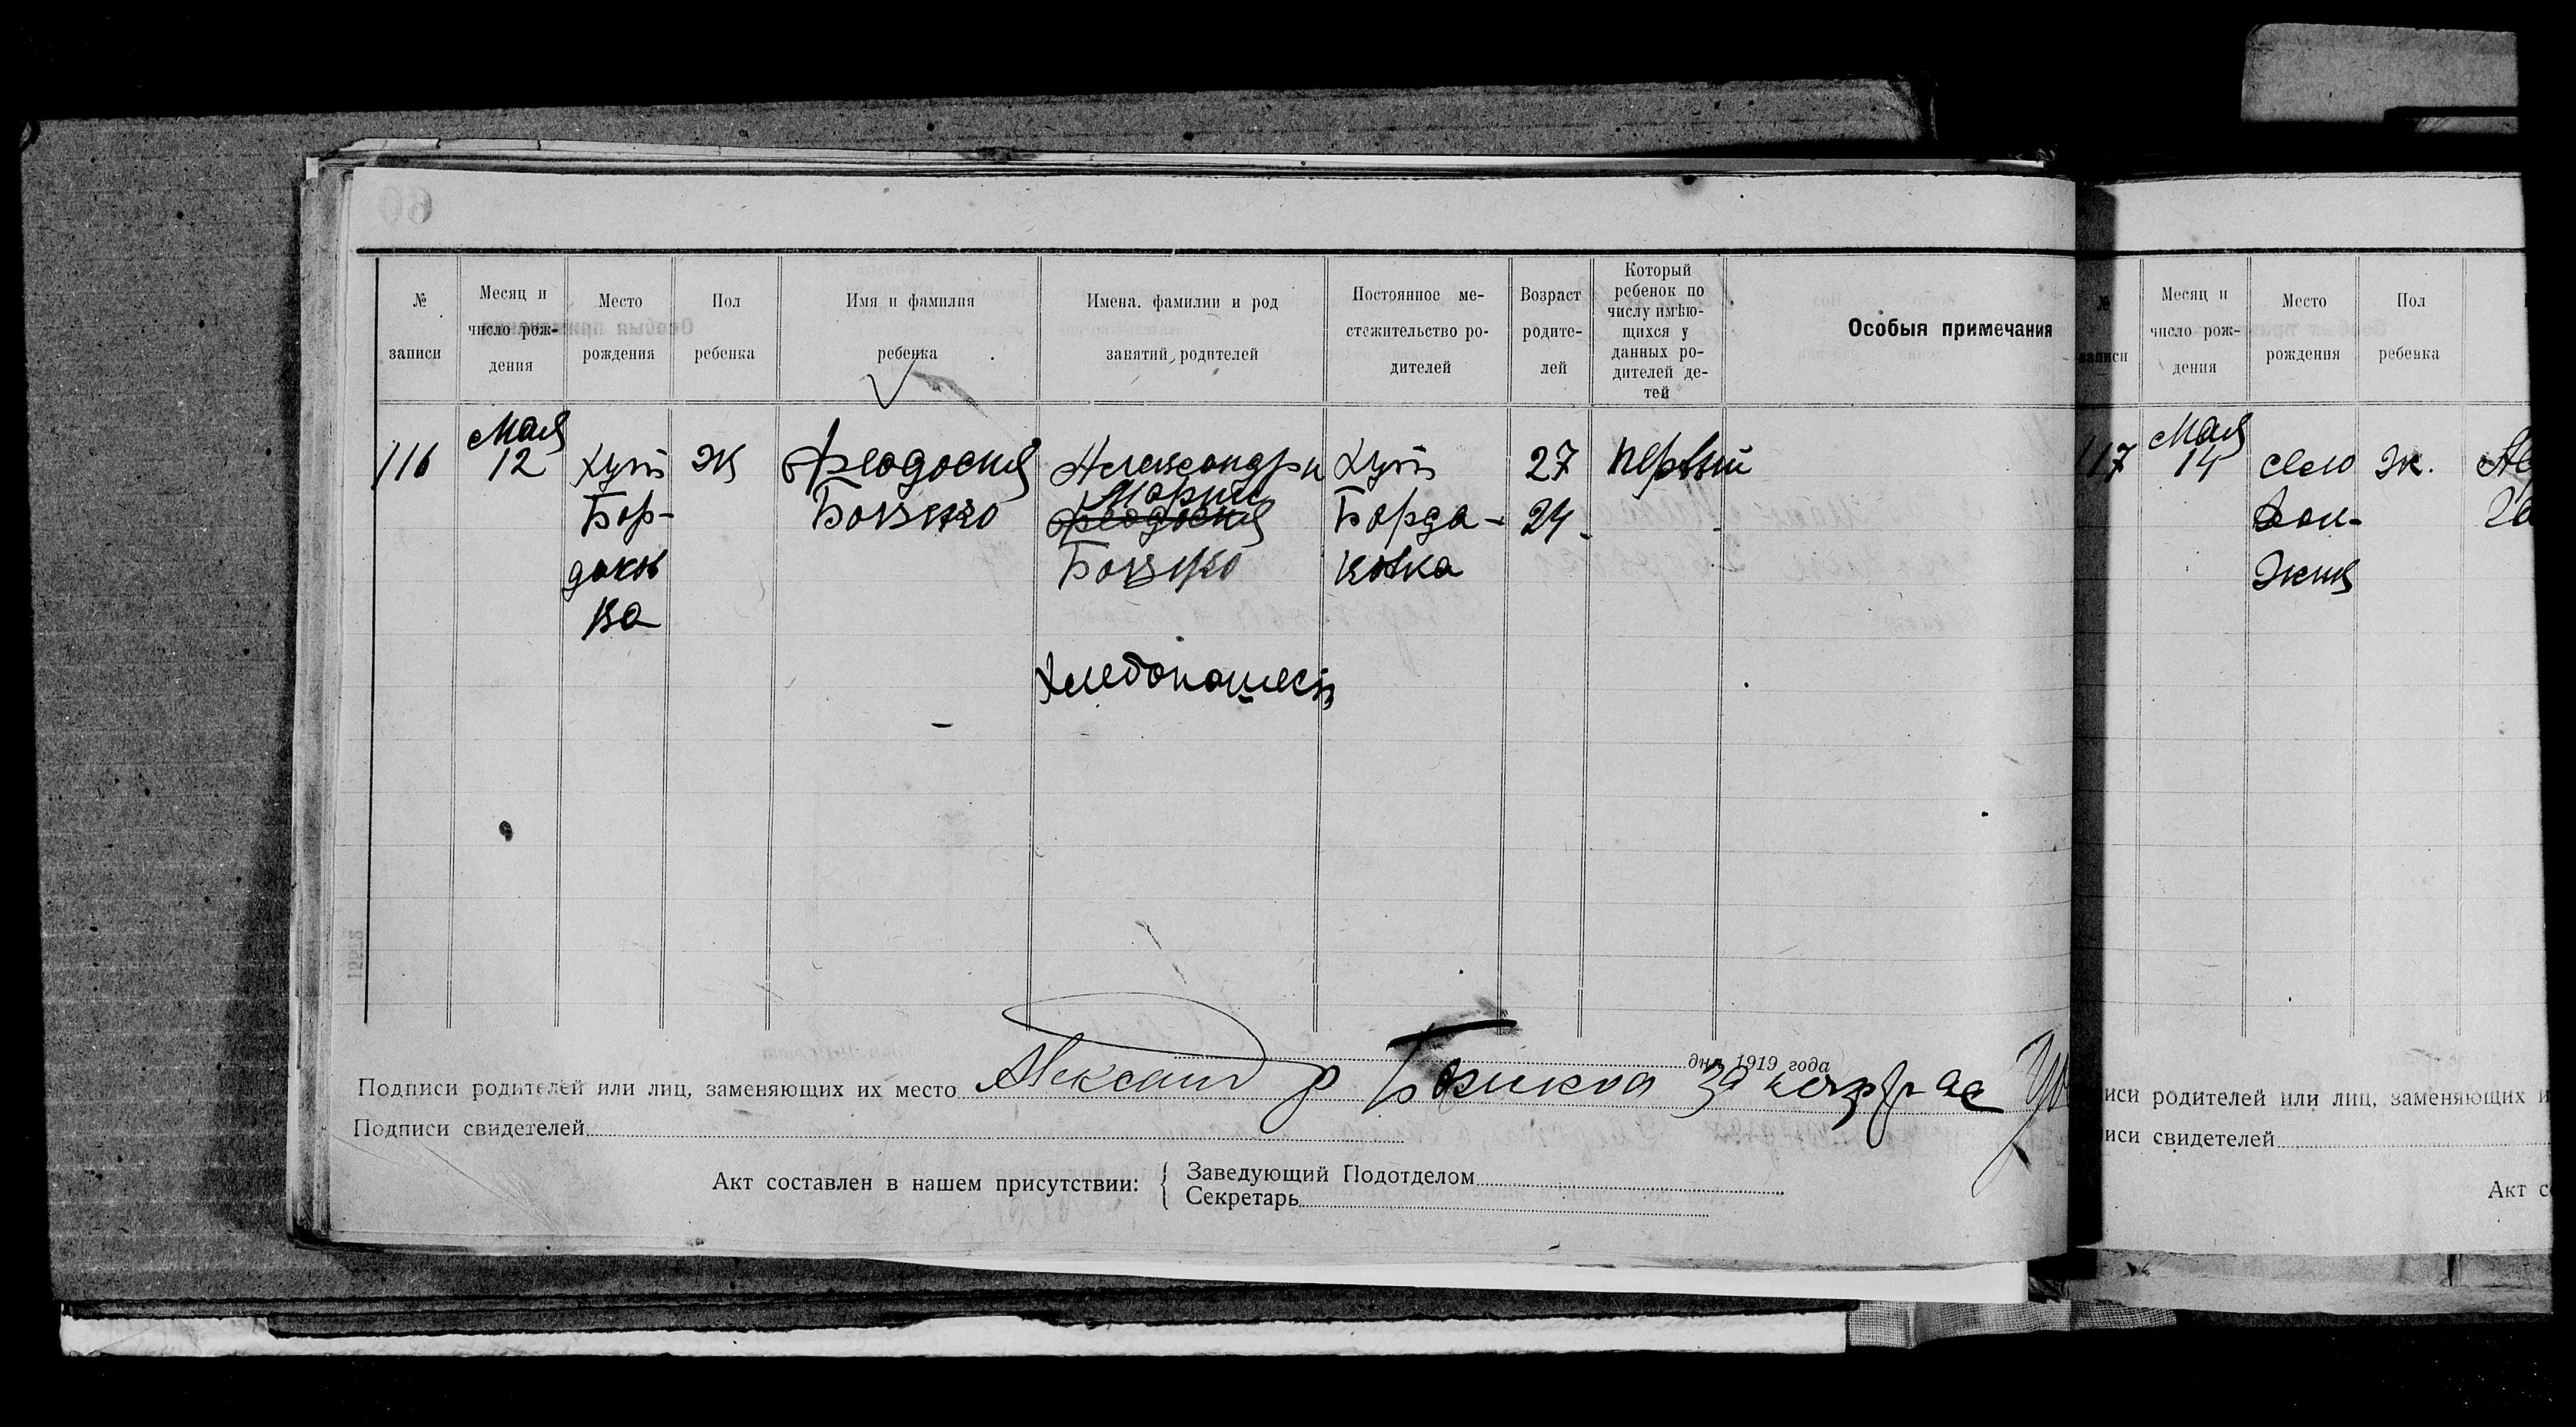 № записи
Месяц и число рождения
Место рождения
Пол ребенка
Имя и фамилия ребенка
Имена. фамилии и род занятий родителей
Постоянное местожительство родителей
Возраст родителей
Который ребенок по числу имѣющихся у данных родителей детей
Особыя примечания
116
Мая
12
Хут
Бор-
даков
ка
Ж
Феодосия
Александр и
Мария
Феодосия
Хут
Борда-
ковка
27
24
первый
Хлебопашест
дня 1919 года
Подписи родителей или лиц, заменяющих их место Александр
Подписи свидетелей
Акт составлен в нашем присутствии:
Заведующий Подотделом
Секретарь
записи
Месяц и число рождения
Место рождения
Пол ребенка
117
Мая
14
село
Ж.
иси родителей или лиц, заменяющих и
иси свидетелей
Акт с